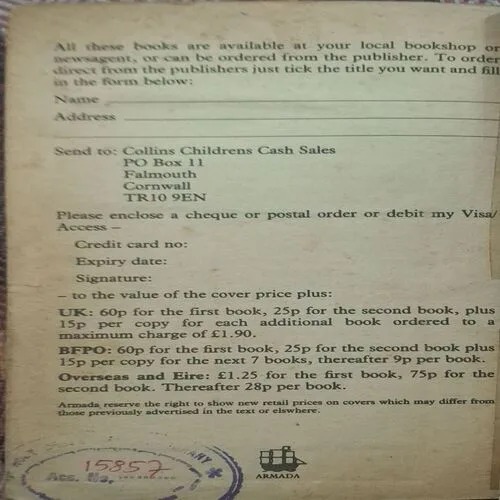 All these books are available at your local bookshop or
newsagent, or can be ordered from the publisher. To order
direct from the publishers just tick the title you want and fill
in the form below:
Name
Address
Send to: Collins Childrens Cash Sales
PO Box 11
Falmouth
Cornwall
TR10 9EN
Please enclose a cheque or postal order or debit my Visa/
Access –
Credit card no:
Expiry date:
Signature:
– to the value of the cover price plus:
UK: 60p for the first book, 25p for the second book, plus
15p per copy for each additional book ordered to a
maximum charge of £1.90.
BFPO: 60p for the first book, 25p for the second book plus
15p per copy for the next 7 books, thereafter 9p per book.
Overseas and Eire: £1.25 for the first book, 75p for the
second book. Thereafter 28p per book.
Armada reserve the right to show new retail prices on covers which may differ from
those previously advertised in the text or elswhere.
Acc. No. 15857
ARMADA